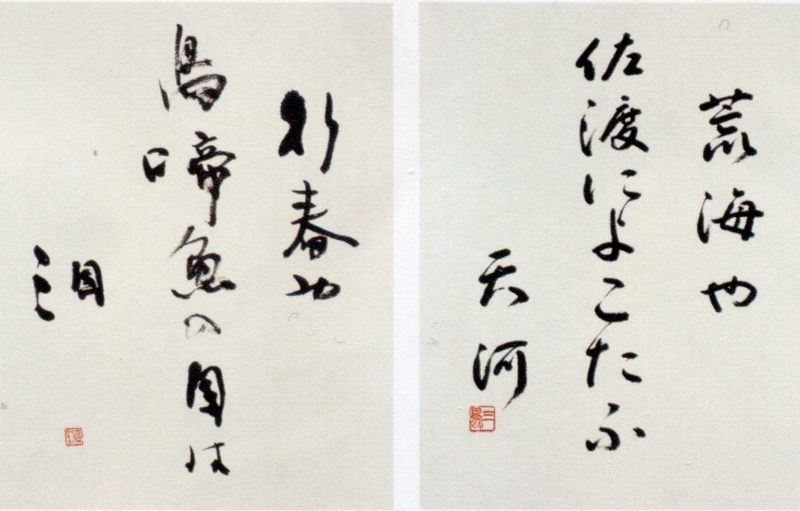 荒海や
佐渡によこたふ
天河
行春や
鳥啼魚の目は
泪